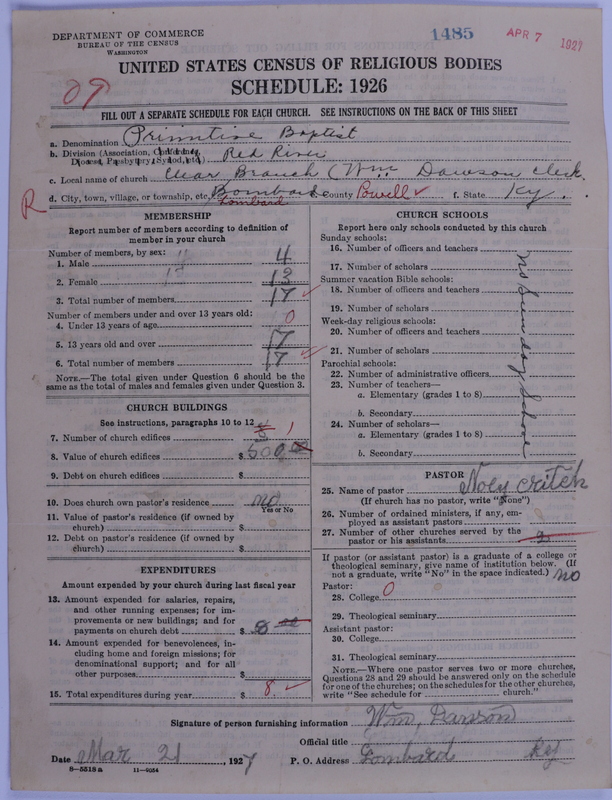 DEPARTMENT OF COMMERCE
BUREAU OF THE CENSUS
WASHINGTON
1485
APR 7 1927
UNITED STATES CENSUS OF RELIGIOUS BODIES
SCHEDULE: 1926
FILL OUT A SEPARATE SCHEDULE FOR EACH CHURCH. SEE INSTRUCTIONS ON THE BACK OF THIS SHEET
a. Denomination Primitive Baptist
b. Division (Association, Conference, Diocese, Presbytery, Synod, etc.) Red River
c. Local name of church Clear Branch (Wm. Dawson Clerk.
R
d. City, town, village, or township, etc. Bombard Lombard e. County Powell ✓ f. State Ky.
MEMBERSHIP
Report number of members according to definition of
member in your church
Number of members, by sex:
1. Male 4
2. Female 13
3. Total number of members 17 ✓
Number of members under and over 13 years old:
4. Under 13 years of age 0
5. 13 years old and over 17
6. Total number of members 17 ✓
NOTE.—The total given under Question 6 should be the
same as the total of males and females given under Question 3.
CHURCH BUILDINGS
See instructions, paragraphs 10 to 12
7. Number of church edifices 1
8. Value of church edifices $ 500
9. Debt on church edifices $
10. Does church own pastor's residence no
Yes or No
11. Value of pastor's residence (if owned by
church) $
12. Debt on pastor's residence (if owned by
church) $
EXPENDITURES
Amount expended by your church during last fiscal year
13. Amount expended for salaries, repairs,
and other running expenses; for im-
provements or new buildings; and for
payments on church debt $ 8
14. Amount expended for benevolences, in-
cluding home and foreign missions; for
denominational support; and for all
other purposes $
15. Total expenditures during year $ 8. ✓
CHURCH SCHOOLS
Report here only schools conducted by this church
Sunday schools:
16. Number of officers and teachers
17. Number of scholars
Summer vacation Bible schools:
18. Number of officers and teachers
19. Number of scholars
Week-day religious schools:
20. Number of officers and teachers
21. Number of scholars
Parochial schools:
22. Number of administrative officers
23. Number of teachers—
a. Elementary (grades 1 to 8)
b. Secondary
24. Number of scholars—
a. Elementary (grades 1 to 8)
b. Secondary
no Sunday School
PASTOR
25. Name of pastor Noey Critch
(If church has no pastor, write "None")
26. Number of ordained ministers, if any, em-
ployed as assistant pastors
27. Number of other churches served by the
pastor or his assistants 2
If pastor (or assistant pastor) is a graduate of a college or
theological seminary, give name of institution below. (If
not a graduate, write "No" in the space indicated.) no
Pastor:
28. College 0
29. Theological seminary
Assistant pastor:
30. College
31. Theological seminary
NOTE.—Where one pastor serves two or more churches,
Questions 28 and 29 should be answered only on the schedule
for one of the churches; on the schedules for the other churches,
write "See schedule for church."
Signature of person furnishing information Wm. Dawson
Official title
Date Mar 21, 1927 P. O. Address Lombard Ky
8—5518 a 11—9054